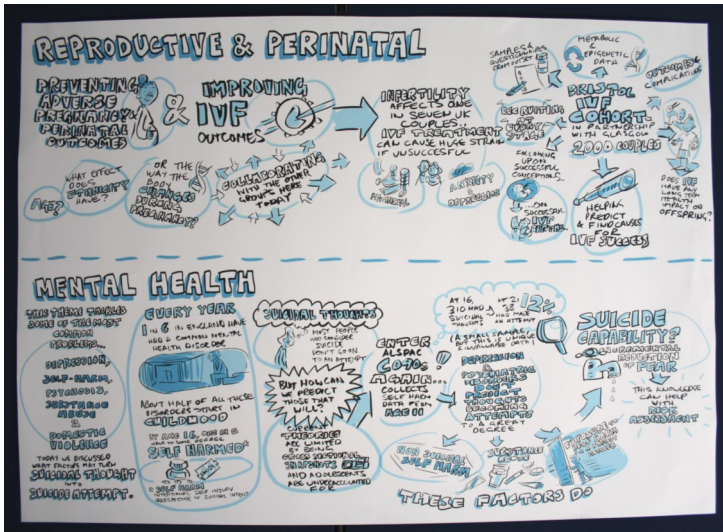 REPRODUCTIVE & PERINATAL
PREVENTING
ADVERSE
PREGNANCY &
PERINATAL
OUTCOMES
&
IMPROVING
IVF
OUTCOMES
AGE?
WHAT EFFECT
DOES
ETHNICITY
HAVE?
OR THE
WAY THE
BODY
CHANGES
DURING
PREGNANCY?
COLLABORATING
WITH THE OTHER
GROUPS HERE
TODAY
INFERTILITY
AFFECTS ONE
IN SEVEN UK
COUPLES..
IVF TREATMENT
CAN CAUSE HUGE STRAIN
IF UNSUCCESSFUL
FINANCIAL
ANXIETY
& DEPRESSION
SAMPLES &
QUESTIONNAIRES
FROM OUTSET
METABOLIC
&
EPIGENETIC
DATA
OUTCOMES &
COMPLICATIONS
RECRUITING
AT
EVERY
STAGE
BRISTOL
IVF
COHORT
IN PARTNERSHIP
WITH GLASGOW
2,000 COUPLES
FOLLOWING
UP ON
SUCCESSFUL
CONCEPTIONS..
SUCCESSFUL
IVF
HELPING
PREDICT
& FIND CAUSES
FOR
IVF SUCCESS
DOES IVF
HAVE ANY
LONG TERM
HEALTH
IMPACT ON
OFFSPRING?
MENTAL HEALTH
THIS THEME TACKLED
SOME OF THE MOST
COMMON
PROBLEMS...
DEPRESSION,
SELF-HARM,
PSYCHOSIS,
SUBSTANCE
ABUSE
&
DOMESTIC
VIOLENCE
TODAY WE DISCUSSED
WHAT FACTORS MAY TURN
SUICIDAL THOUGHT
INTO
SUICIDE ATTEMPT.
EVERY YEAR
1 IN 6 IN ENGLAND HAVE
HAD A COMMON MENTAL
HEALTH DISORDER
ABOUT HALF OF ALL THESE
DISORDERS START IN
CHILDHOOD
SELF HARMED*
* SELF HARM
SUICIDAL THOUGHTS
MOST PEOPLE
WHO CONSIDER
SUICIDE
DON'T GO ON
TO AN ATTEMPT
BUT HOW CAN
WE PREDICT
THOSE THAT
WILL?
CURRENT
THEORIES
ARE LIMITED
BY BEING
CROSS SECTIONAL
SNAPSHOTS
AND ADOLESCENTS
ARE UNDERACCOUNTED
FOR
ENTER
ALSPAC
CO90s
AGAIN...
COLLECTING
SELF HARM
DATA FROM
AGE 11
AT 16,
310 HAD
SUICIDAL
THOUGHTS
AT 21
38
HAD MADE
AN ATTEMPT
12%
(A SMALL SAMPLE,
BUT THIS IS UNIQUE
DEPRESSION
&
PSYCHIATRIC
DISORDERS
DON'T
PREDICT
THOUGHTS
BECOMING
ATTEMPTS
TO A GREAT
DEGREE
NON SUICIDAL
SELF HARM
SUBSTANCE
THESE FACTORS DO
SUICIDE
CAPABILITY?
INCREMENTAL
REDUCTION
OF FEAR
THIS KNOWLEDGE
CAN HELP
WITH
RISK
ASSESSMENT